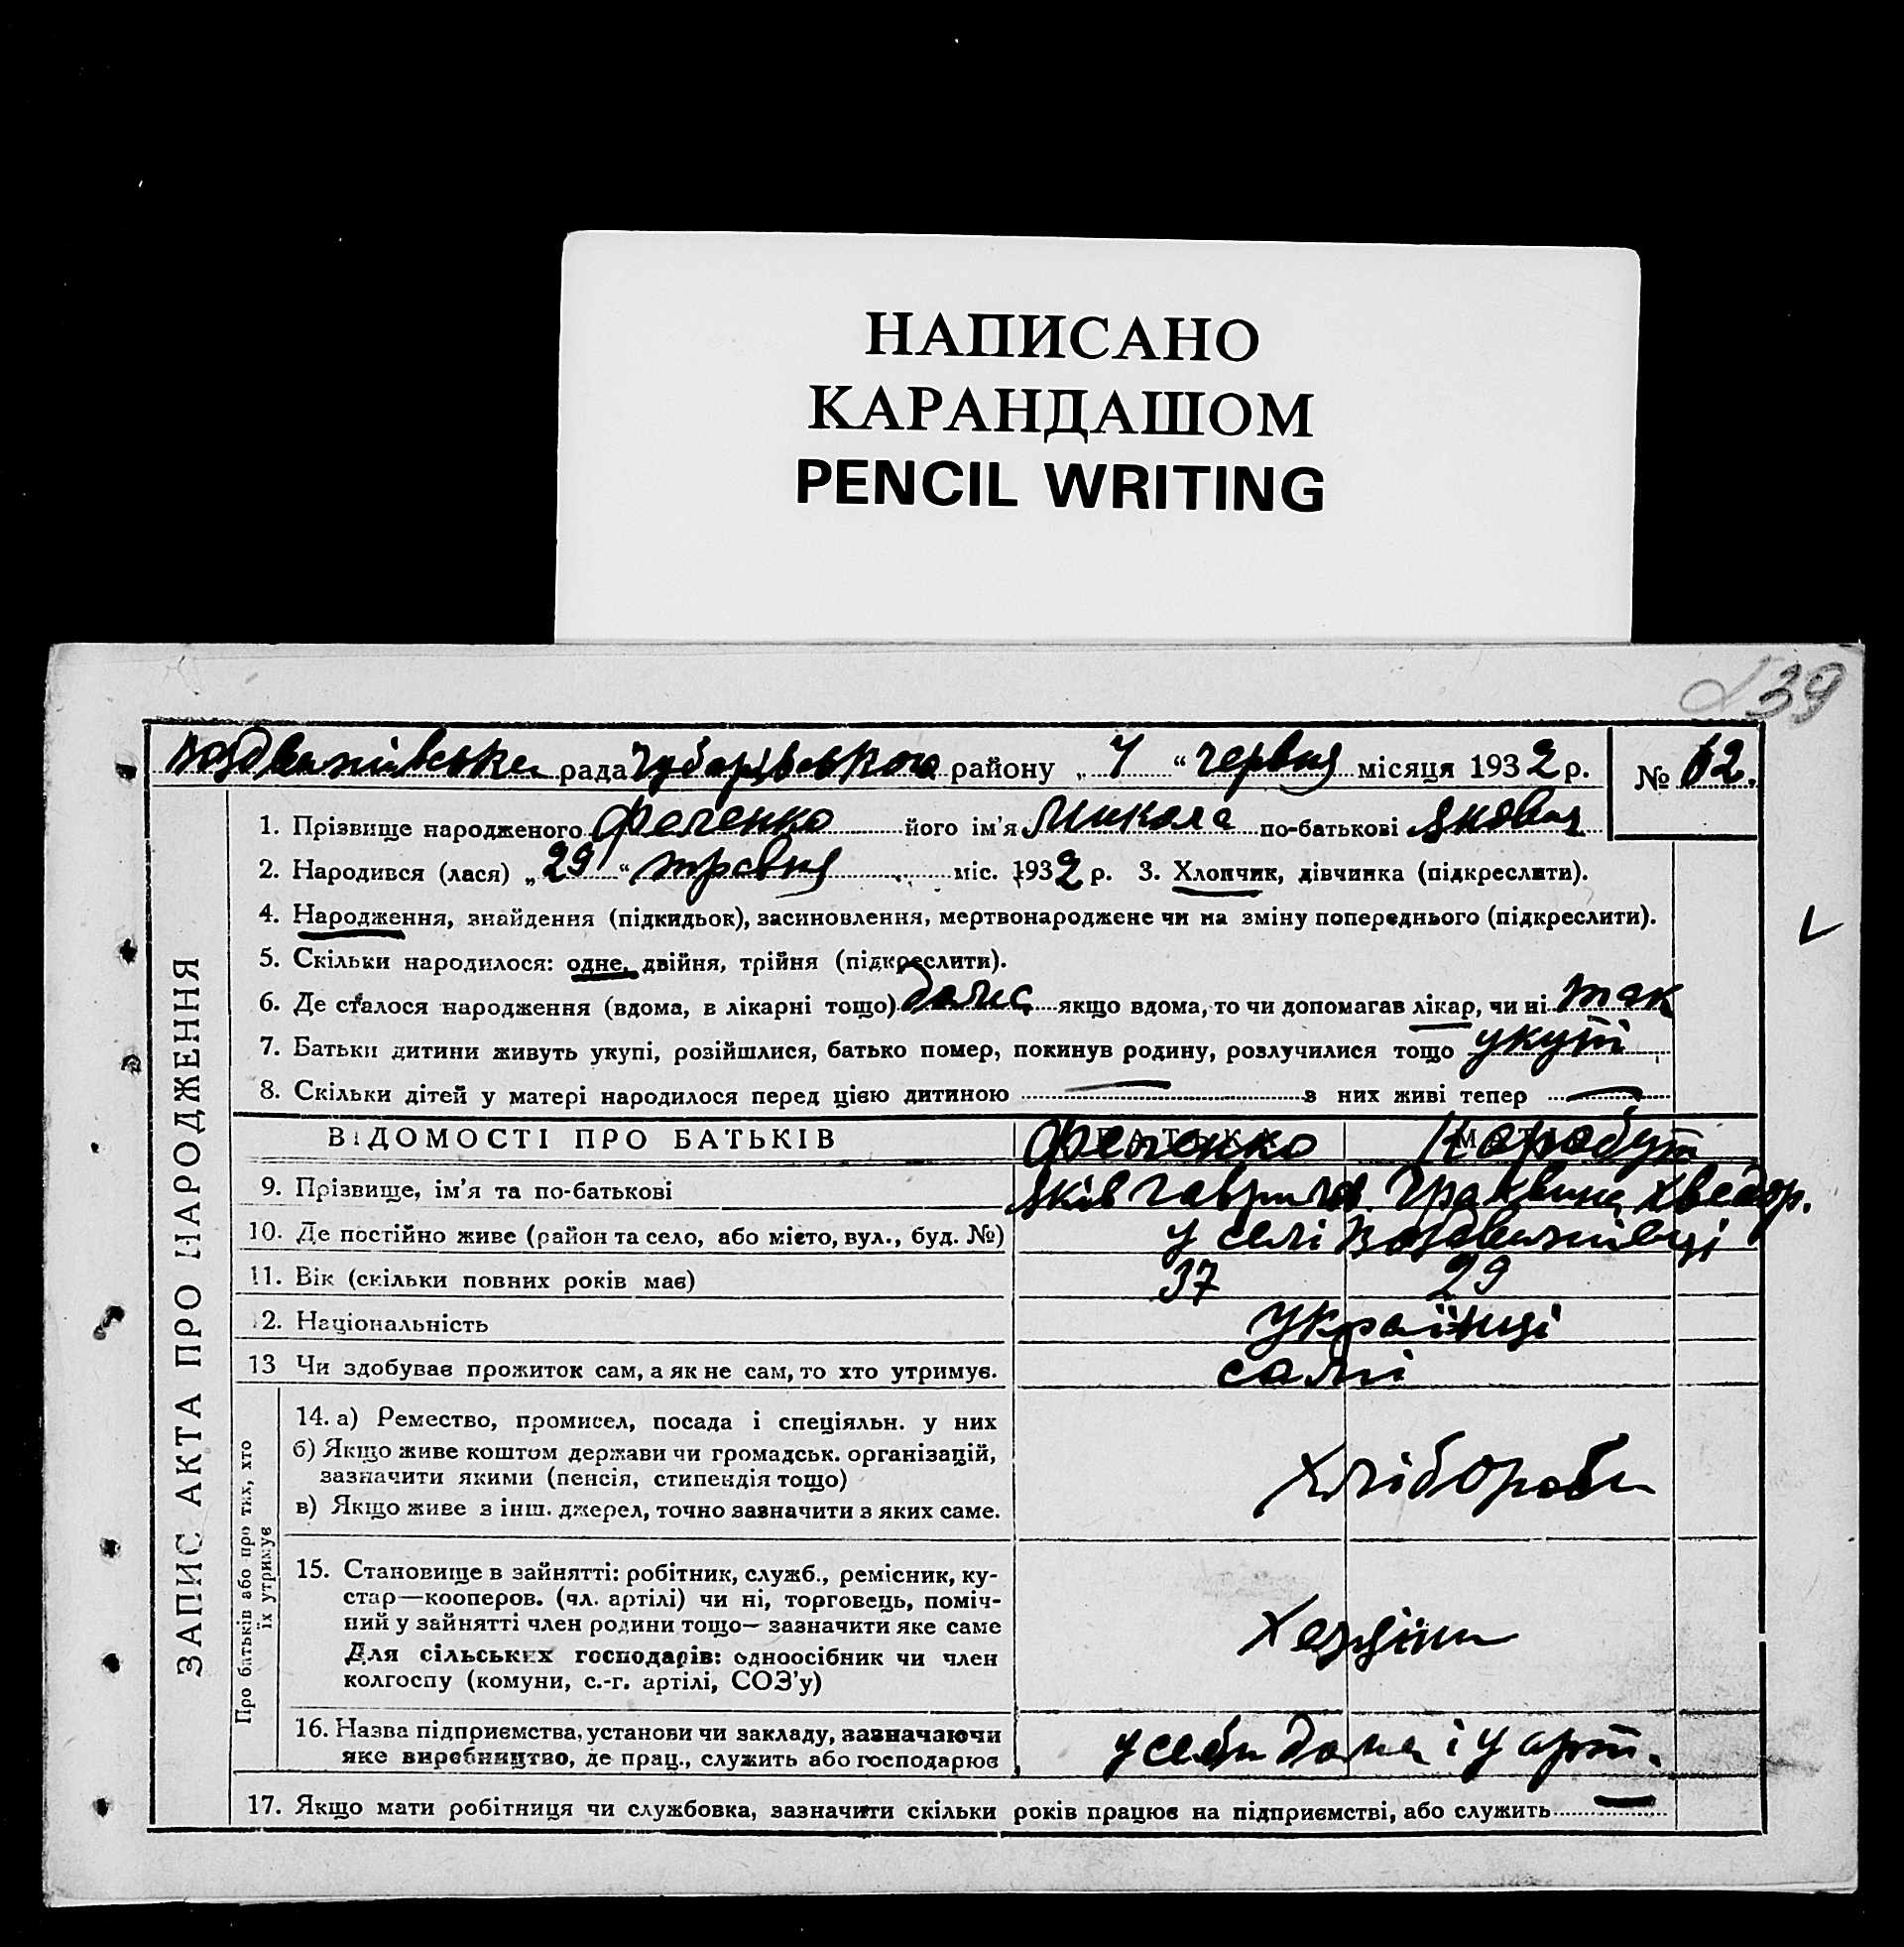 НАПИСАНО
КАРАНДАШОМ
PENCIL WRITING
139
Воздвижівська рада Чубарівського району „ 4 “ червня місяця 1932 р. № 62.
ЗАПИС АКТА ПРО НАРОДЖЕННЯ
1. Прізвище народженого Феленко його ім'я Микола по-батькові Якович
2. Народився (лася) „ 29 “ травня міс. 1932 р. 3. Хлопчик, дівчинка (підкреслити).
4. Народження, знайдення (підкидьок), засиновлення, мертвонароджене чи на зміну попереднього (підкреслити).
5. Скільки народилося: одне, двійня, трійня (підкреслити).
6. Де сталося народження (вдома, в лікарні тощо) дома якщо вдома, то чи допомагав лікар, чи ні так
7. Батьки дитини живуть укупі, розійшлися, батько помер, покинув родину, розлучилися тощо укупі
8. Скільки дітей у матері народилося перед цією дитиною — з них живі тепер —
ВІДОМОСТІ ПРО БАТЬКІВ Феленко Коробут
9. Прізвище, ім'я та по-батькові Яків Гаврилов. Хведор.
10. Де постійно живе (район та село, або місто, вул., буд. №) у селі Воздвижівці
11. Вік (скільки повних років має) 37 29
12. Національність Українці
13 Чи здобуває прожиток сам, а як не сам, то хто утримує. самі
Про батьків або про тих, хто
їх утримує
14. а) Ремество, промисел, посада і спеціяльн. у них
б) Якщо живе коштом держави чи громадськ. організацій,
зазначити якими (пенсія, стипендія тощо)
в) Якщо живе з інш. джерел, точно зазначити з яких саме.
хлібороби
15. Становище в зайнятті: робітник, служб., ремісник, ку-
стар—кооперов. (чл. артілі) чи ні, торговець, поміч-
ний у зайнятті член родини тощо— зазначити яке саме
Для сільських господарів: одноосібник чи член
колгоспу (комуни, с.-г. артілі, СОЗ'у)
16. Назва підприємства, установи чи закладу, зазначаючи
яке виробництво, де прац., служить або господарює
у себе дома і у арт.
17. Якщо мати робітниця чи службовка, зазначити скільки років працює на підприємстві, або служить —